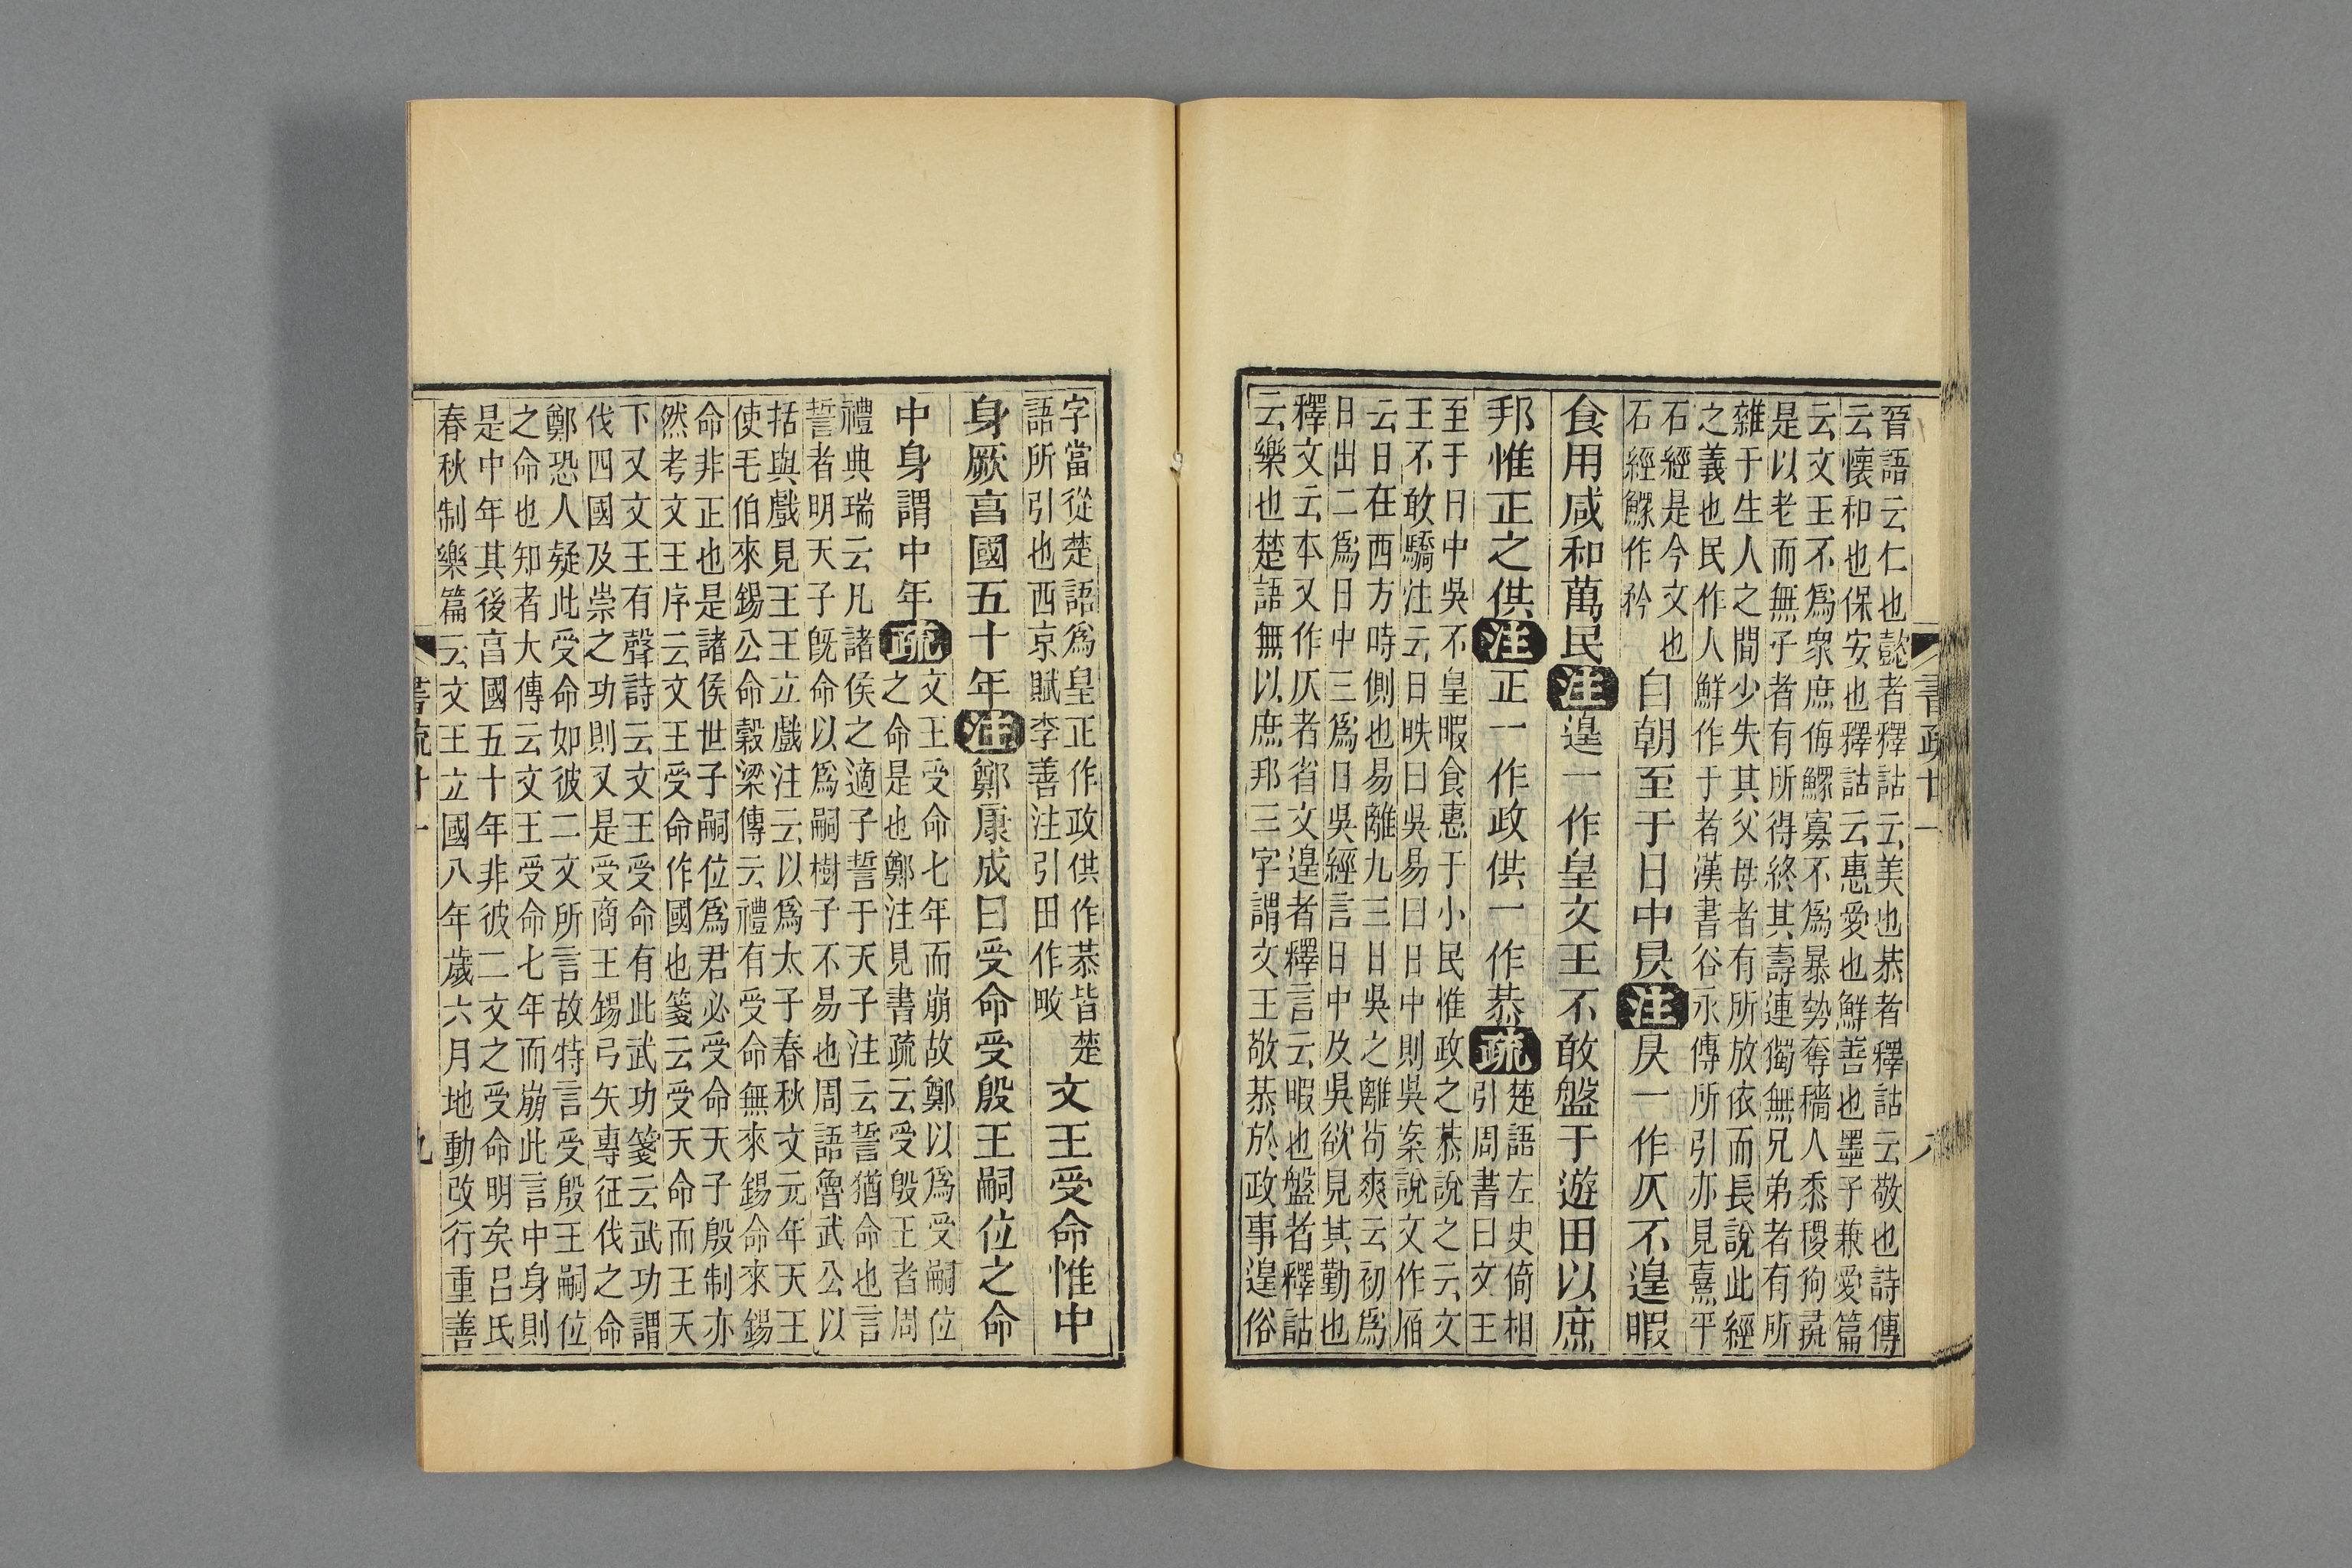 晉語云仁也懿者釋詁云美也恭者釋詁云敬也詩傳
云懷和也保安也釋詁云惠愛也鮮善也墨子兼愛篇
云文王不爲衆庶侮鰥寡不爲暴勢奪穡人黍稷狗彘
是以老而無子者有所得終其壽連獨無兄弟者有所
雜于生人之間少失其父母者有所放依而長說此經
之義也民作人鮮作于者漢書谷永傳所引亦見熹平
石經是今文也
石經鰥作矜
自朝至于日中昃注昃一作仄不遑暇
食用咸和萬民注遑一作皇文王不敢盤于遊田以庶
邦惟正之供注正一作政供一作恭疏
楚語左史倚相
引周書曰文王
至于日中吳不皇暇食惠于小民惟政之恭說之云文
王不敢驕注云日昳曰吳易曰日中則吳案說文作㕓
云日在西方時側也易離九三日吳之離荀爽云初爲
日出二爲日中三爲日吳經言日中及吳欲見其勤也
釋文云本又作仄者省文遑者釋言云暇也盤者釋詁
云樂也楚語無以庶邦三字謂文王敬恭於政事遑俗
書疏廿一
八
字當從楚語爲皇正作政供作恭皆楚
語所引也西京賦李善注引田作畋
文王受命惟中
身厥亯國五十年注鄭康成曰受命受殷王嗣位之命
中身謂中年疏
文王受命七年而崩故鄭以爲受嗣位
之命是也鄭注見書疏云受殷王者周
禮典瑞云凡諸侯之適子誓于天子注云誓猶命也言
誓者明天子旣命以爲嗣樹子不易也周語魯武公以
括與戲見王王立戲注云以爲太子春秋文元年天王
使毛伯來錫公命穀梁傳云禮有受命無來錫命來錫
命非正也是諸侯世子嗣位爲君必受命天子殷制亦
然考文王序云文王受命作國也箋云受天命而王天
下又文王有聲詩云文王受命有此武功箋云武功謂
伐四國及崇之功則又是受商王錫弓矢專征伐之命
鄭恐人疑此受命如彼二文所言故特言受殷王嗣位
之命也知者大傳云文王受命七年而崩此言中身則
是中年其後亯國五十年非彼二文之受命明矣呂氏
春秋制樂篇云文王立國八年歲六月地動改行重善